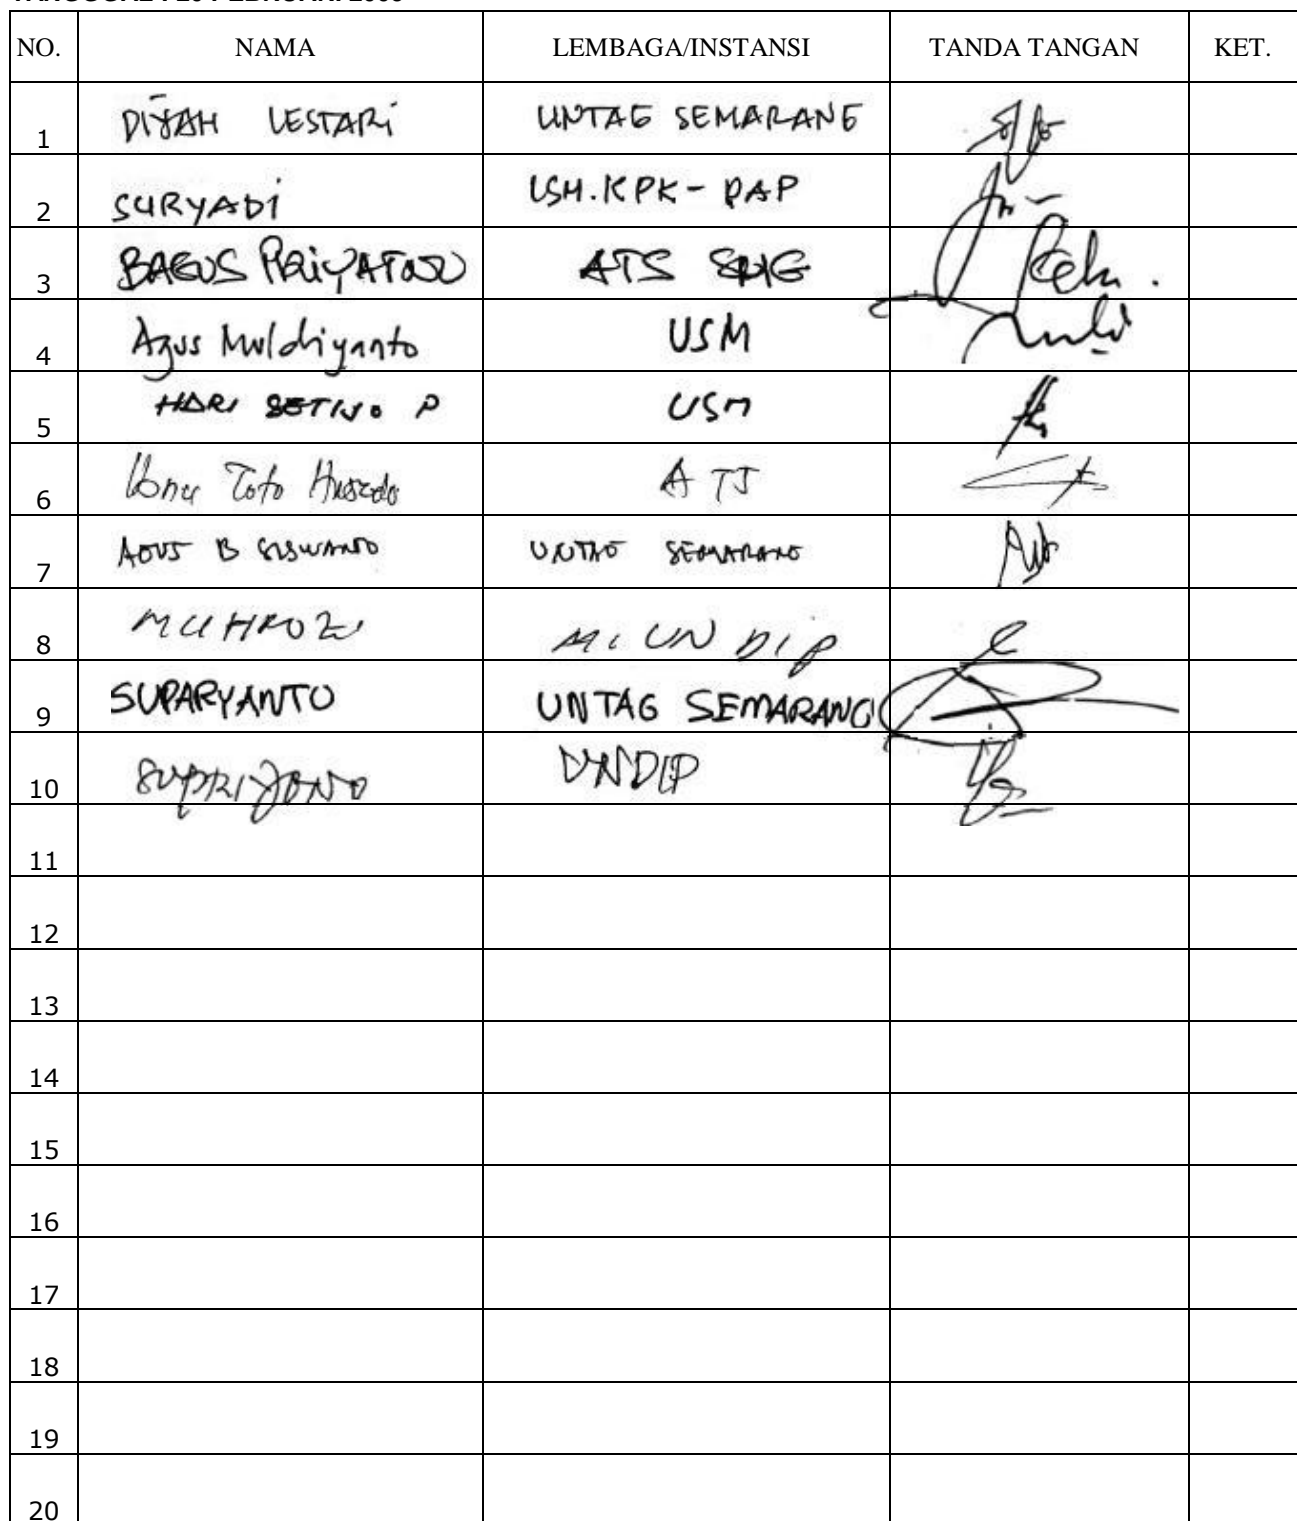 NO. NAMA LEMBAGA/INSTANSI TANDA TANGAN KET.
1 DIJAH LESTARI UNTAG SEMARANG
2 SURYADI USM.KPK-DAP
3 BAGUS PRIYATNO ATS SMG
4 Agus Muldiyanto USM
5 HARI SETIJO P USM
6 Toto ATS
7 AGUS B SISWANTO UNTAG SEMARANG
8 MUHROZI UNDIP
9 SUPARYANTO UNTAG SEMARANG
10 SUPRIJONO UNDIP
11
12
13
14
15
16
17
18
19
20